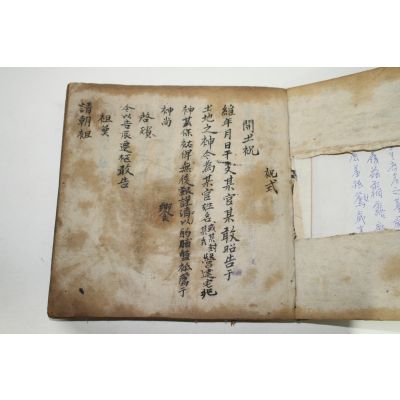 祝式
開土祝
維年月日干支某官某敢昭告于
土地之神今為某官姓名或某封某氏營建宅兆
神其保祐俾無後艱謹清以酌脯醢祗薦于
神尚 饗
啓殯
今以吉辰遷柩敢告
祖奠
請朝祖